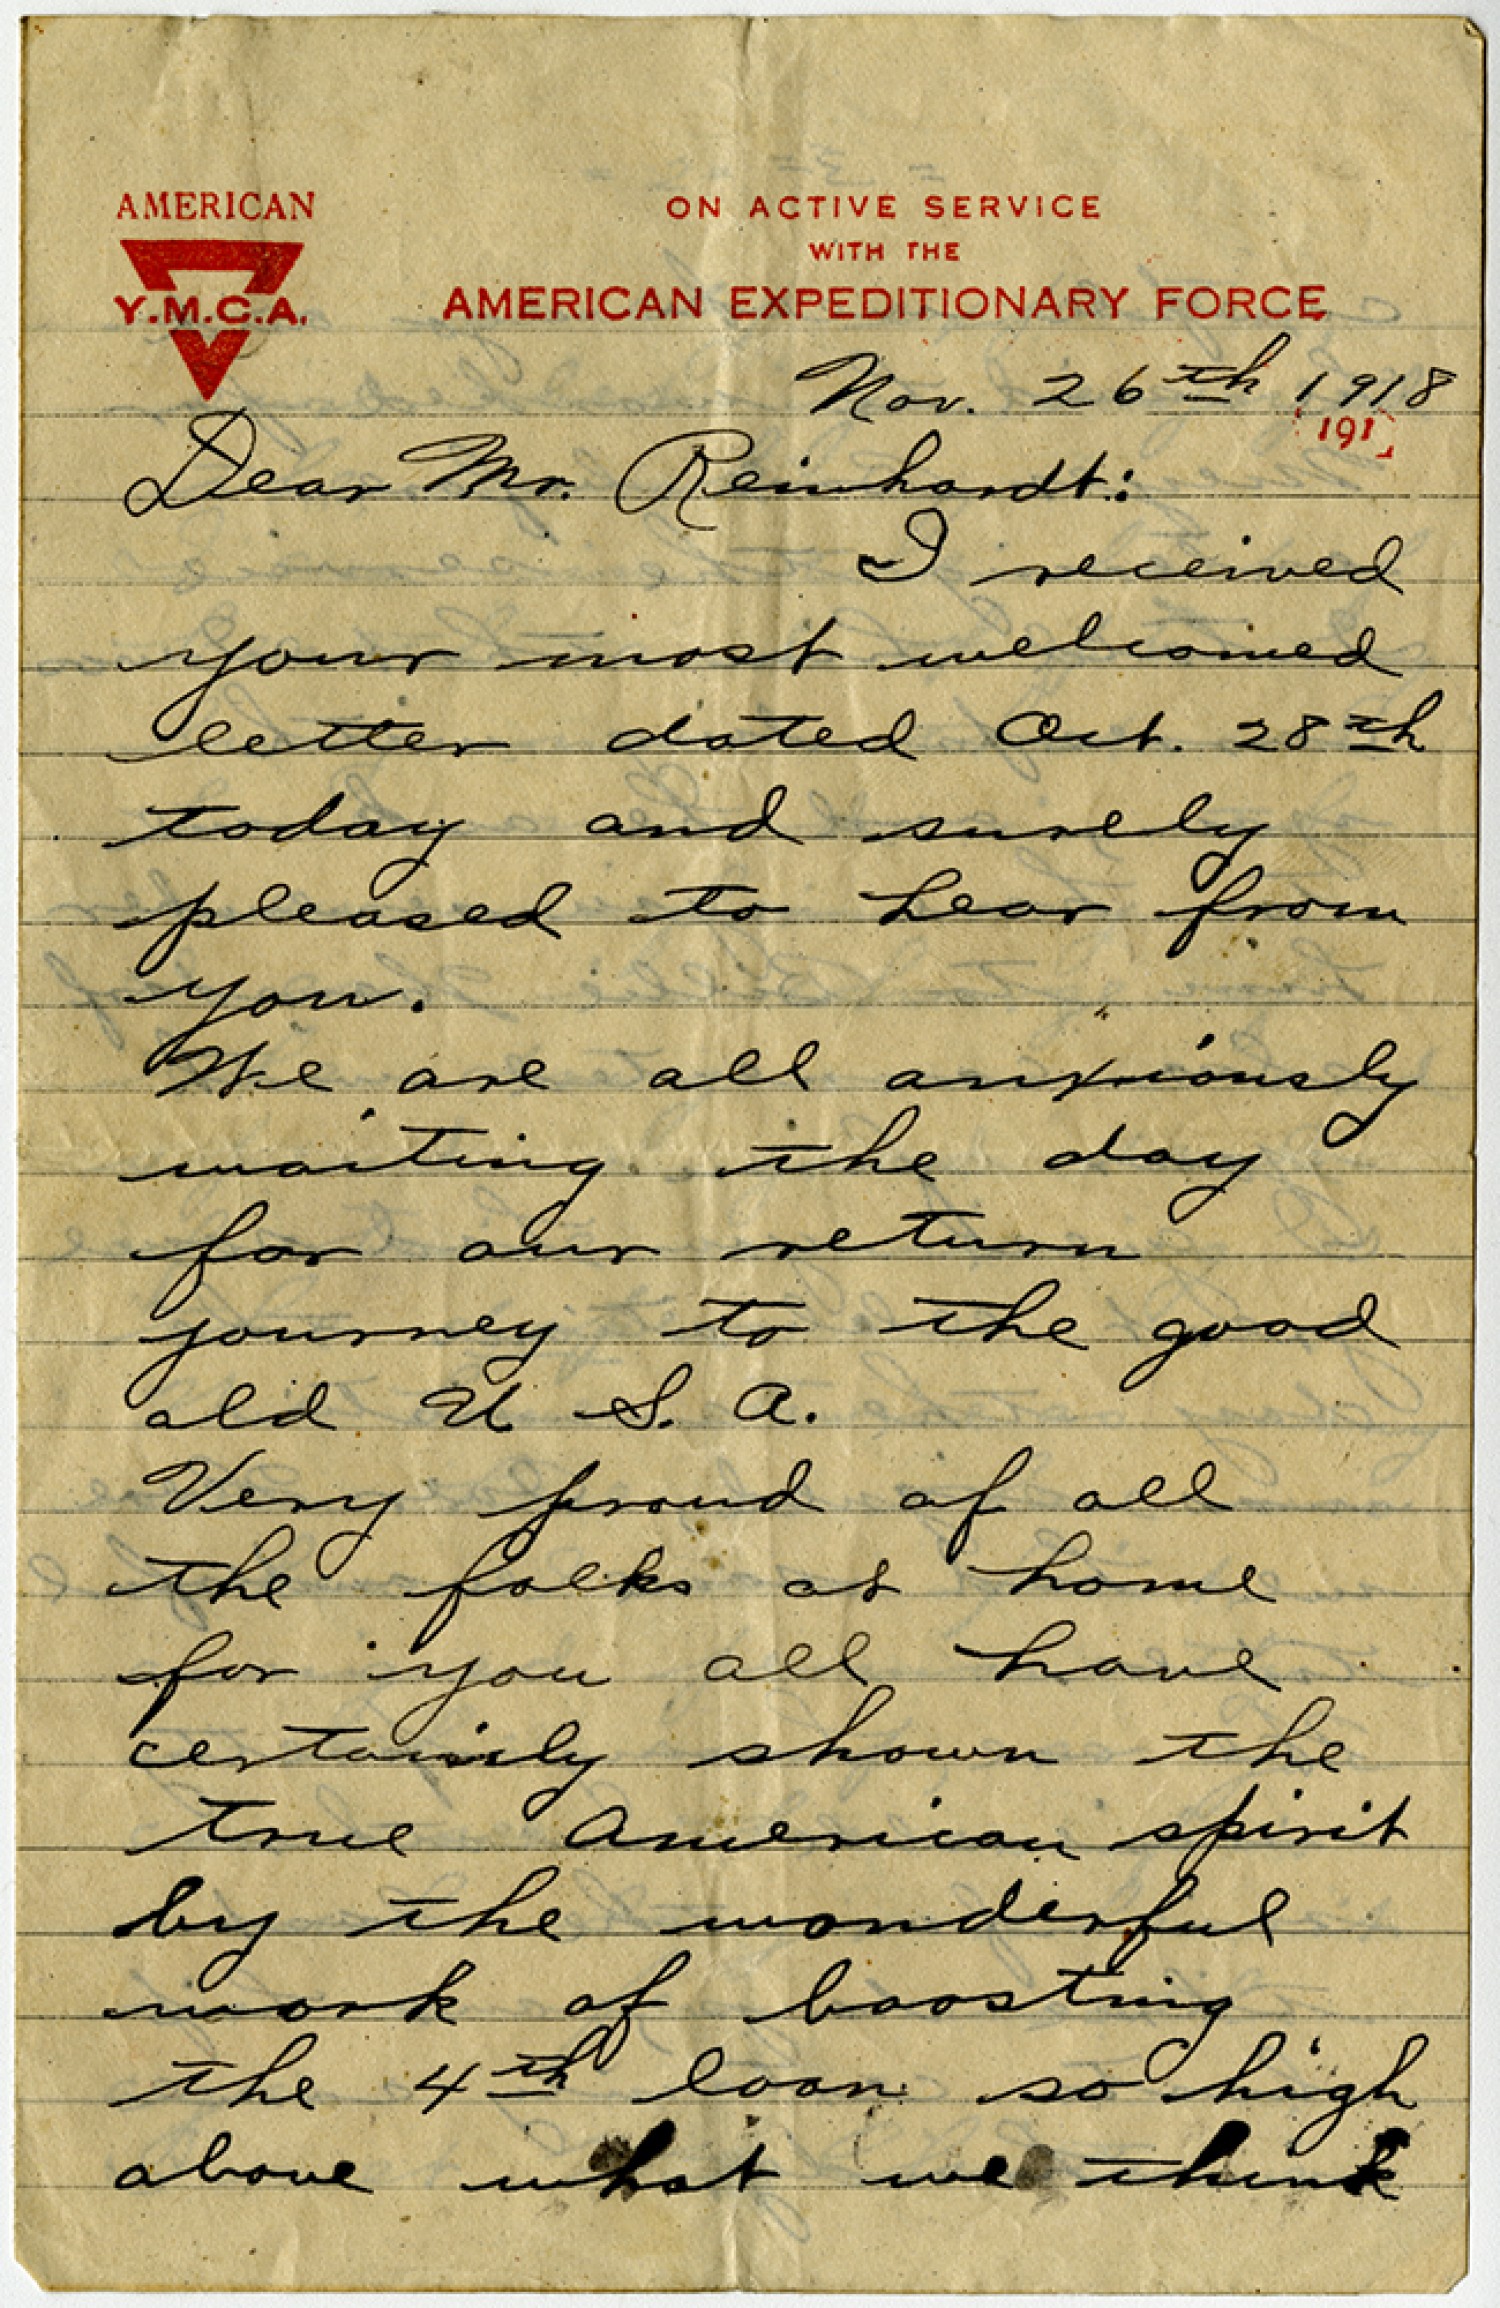 AMERICAN
Y.M.C.A.
ON ACTIVE SERVICE
WITH THE
AMERICAN EXPEDITIONARY FORCE
Nov. 26th 1918
191
Dear Mr. Reinhardt:
I received
your most welcomed
letter dated Oct. 28th
today and surely
pleased to hear from
you.
We are all anxiously
waiting the day
for our return
journey to the good
old U S. A.
Very proud of all
the folks at home
for you all have
certainly shown the
true American spirit
by the wonderful
work of boosting
the 4th loan so high
above what we think